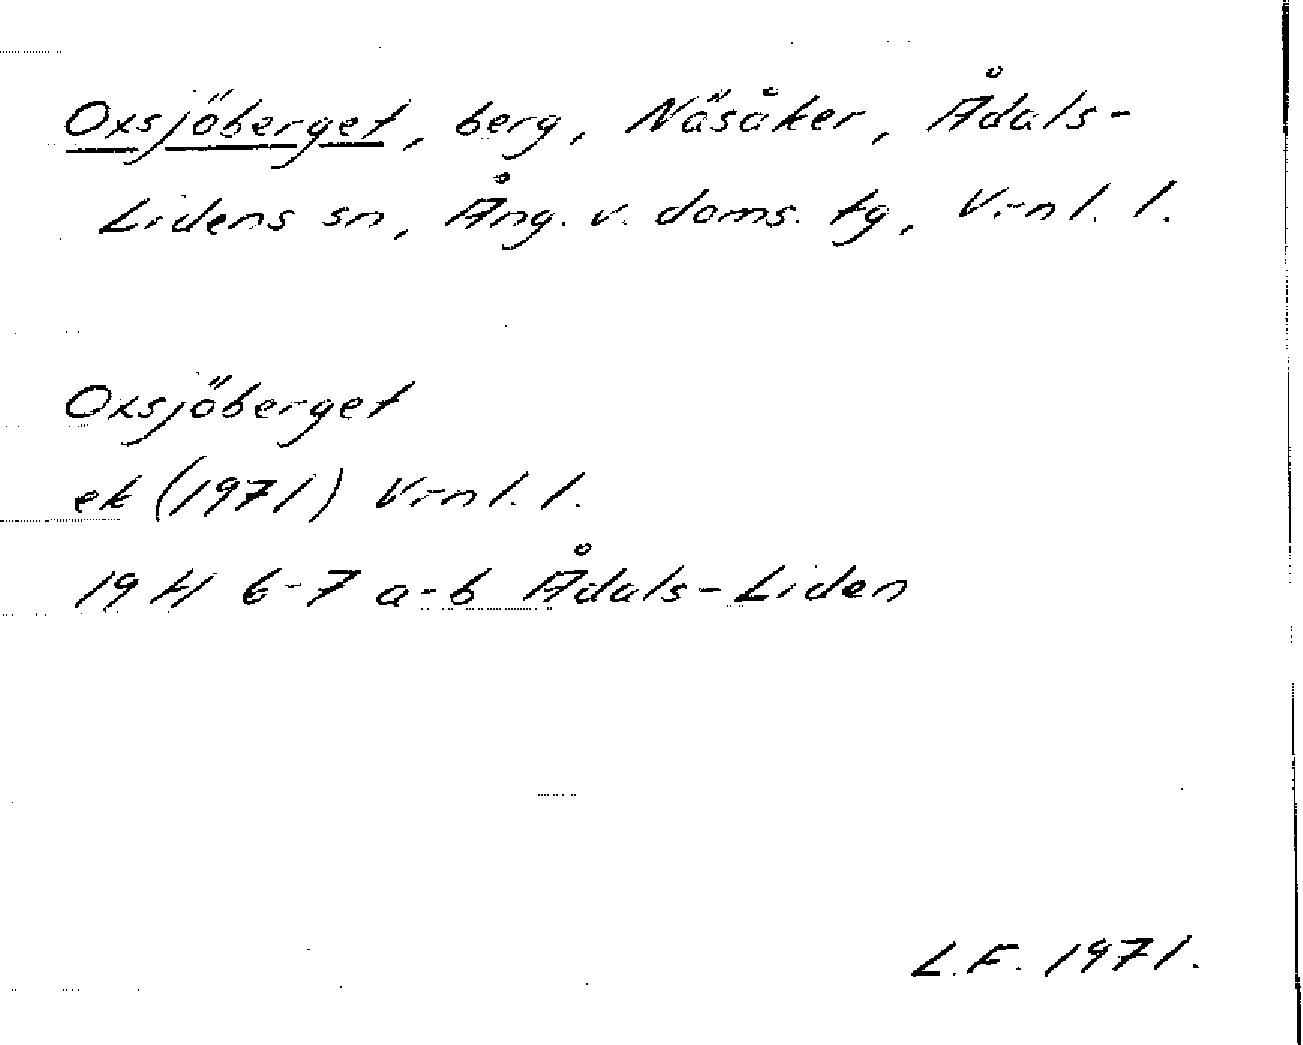 Oxsjöberget, berg, Näsåker, Ådals-
Lidens sn, Ång. v. doms. tg, V.-nl. l.
Oxsjöberget
ek (1971) V.-nl. l.
19 H 6-7 a-b Ådals-Liden
L.F. 1971.